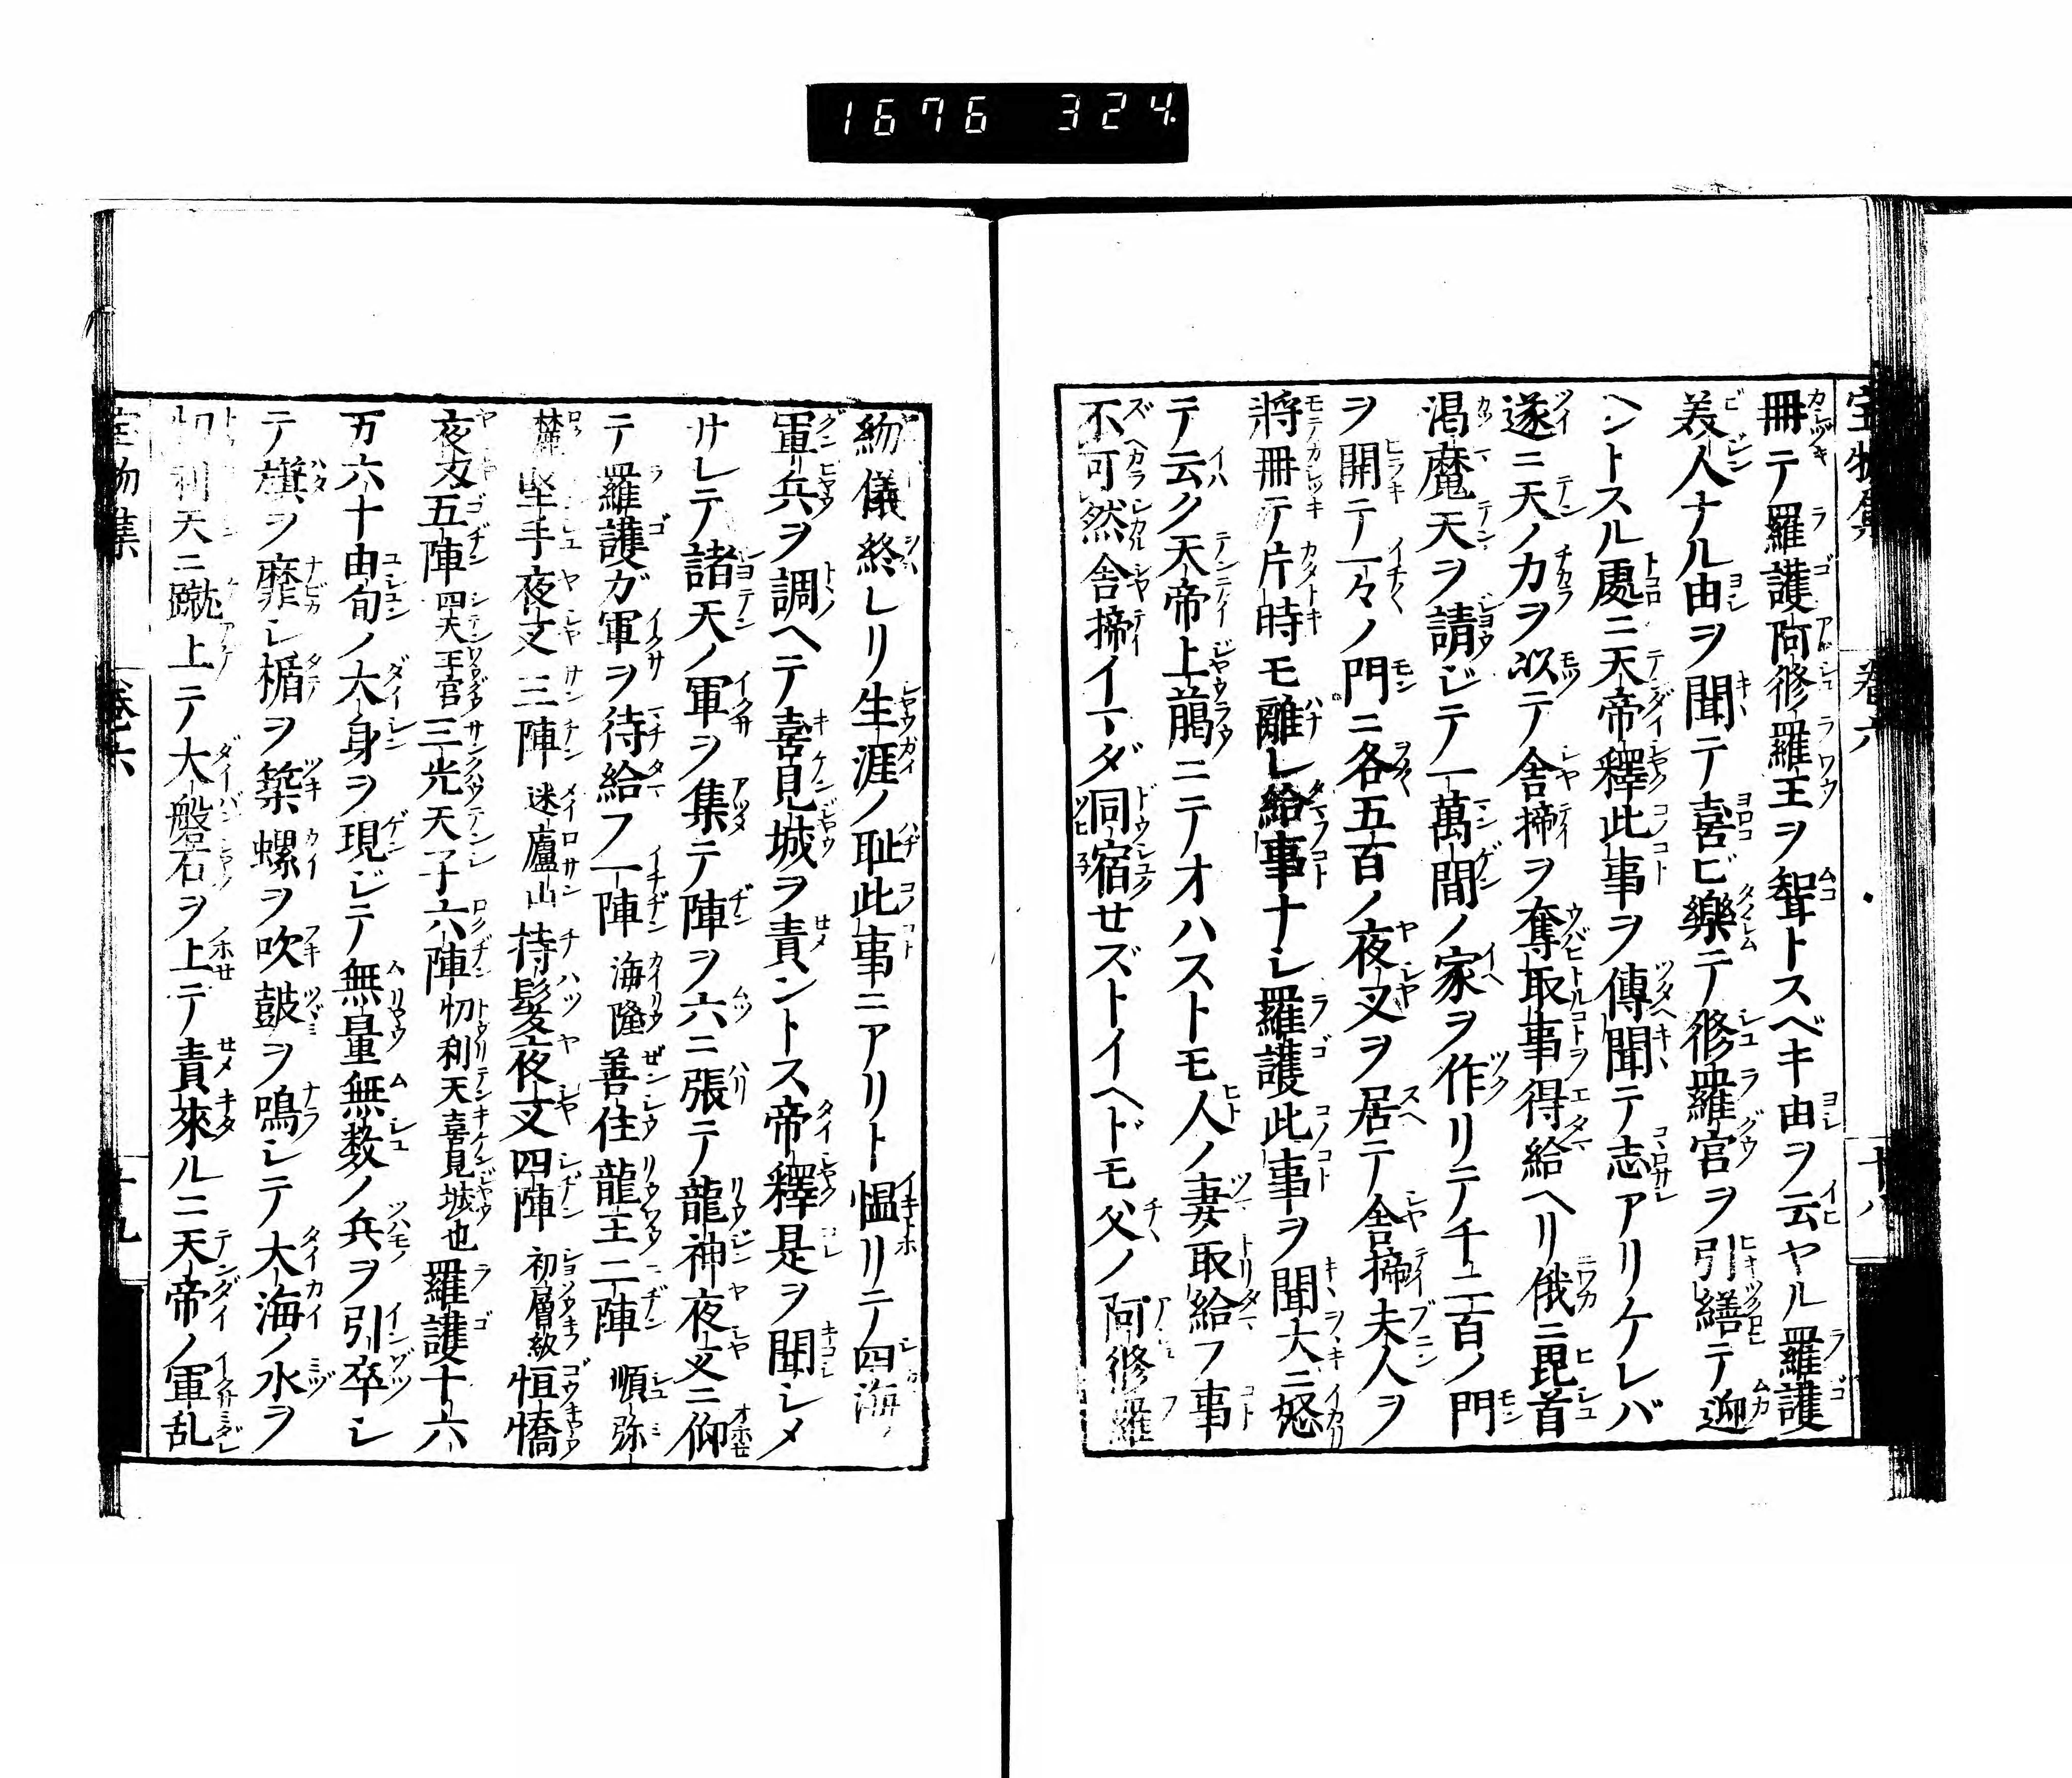 1676 324.
宝物集 巻六 十八
冊テ羅護阿修羅王ヲ聟トスベキ由ヲ云ヤル羅護
美人ナル由ヲ聞テ喜ビ樂テ修羅官ヲ引繕テ迎
ヘントスル處ニ天帝釋此事ヲ傳聞テ志アリケレバ
遂ニ天ノ力ヲ以テ舎掃ヲ奪取事得給ヘリ俄ニ毘首
渇魔天ヲ請ジテ一萬間ノ家ヲ作リテ千二百ノ門
ヲ開テ一々ノ門ニ各五百ノ夜叉ヲ居テ舎掃夫人ヲ
將冊テ片時モ離レ給事ナシ羅護此事ヲ聞大ニ怒
テ云ク天帝上﨟ニテオハストモ人ノ妻取給フ事
不可然舎掃イマダ同宿せズトイヘドモ父ノ阿修羅
約儀終レリ生涯ノ耻此事ニアリト慍リテ四海ノ
軍兵ヲ調ヘテ喜見城ヲ責ントス帝釋是ヲ聞シメ
サレテ諸天ノ軍ヲ集テ陣ヲ六ニ張テ龍神夜叉ニ仰
テ羅護ガ軍ヲ待給フ一陣 海隆善住龍王二陣 順弥
麓堅手夜叉三陣 迷廬山持髪夜叉四陣 初層級恒憍
夜叉五陣四天王官三光天子六陣忉利天喜見城也羅護十六
万六十由旬ノ大身ヲ現ジテ無量無数ノ兵ヲ引卒シ
テ旗ヲ靡シ楯ヲ築螺ヲ吹鼓ヲ鳴シテ大海ノ水ヲ
忉利天ニ蹴上テ大磐石ヲ上テ責來ルニ天帝ノ軍乱
宝物集 巻六 十九